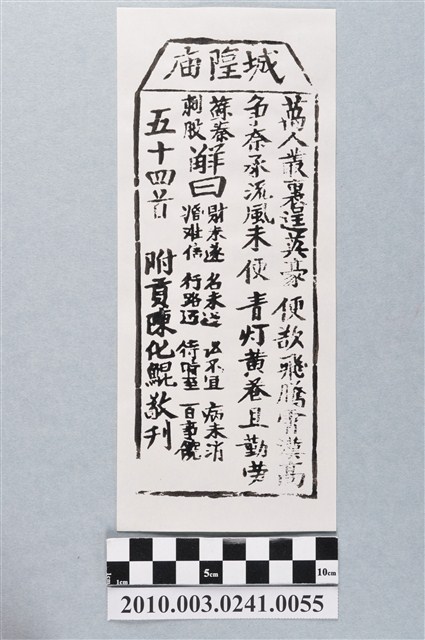 城隍庙
萬人叢裏逞英豪 便欲飛騰霄漢高
争奈承流風未便 青灯黄卷且勤劳
蘇秦
刺股
觧曰
財未遂 名未 不宜 病未消
婚难信 行路 待時至 百事饒
五十四首 附貢陳化鯤敬刋
1cm 5cm 10cm
2010.003.0241.0055